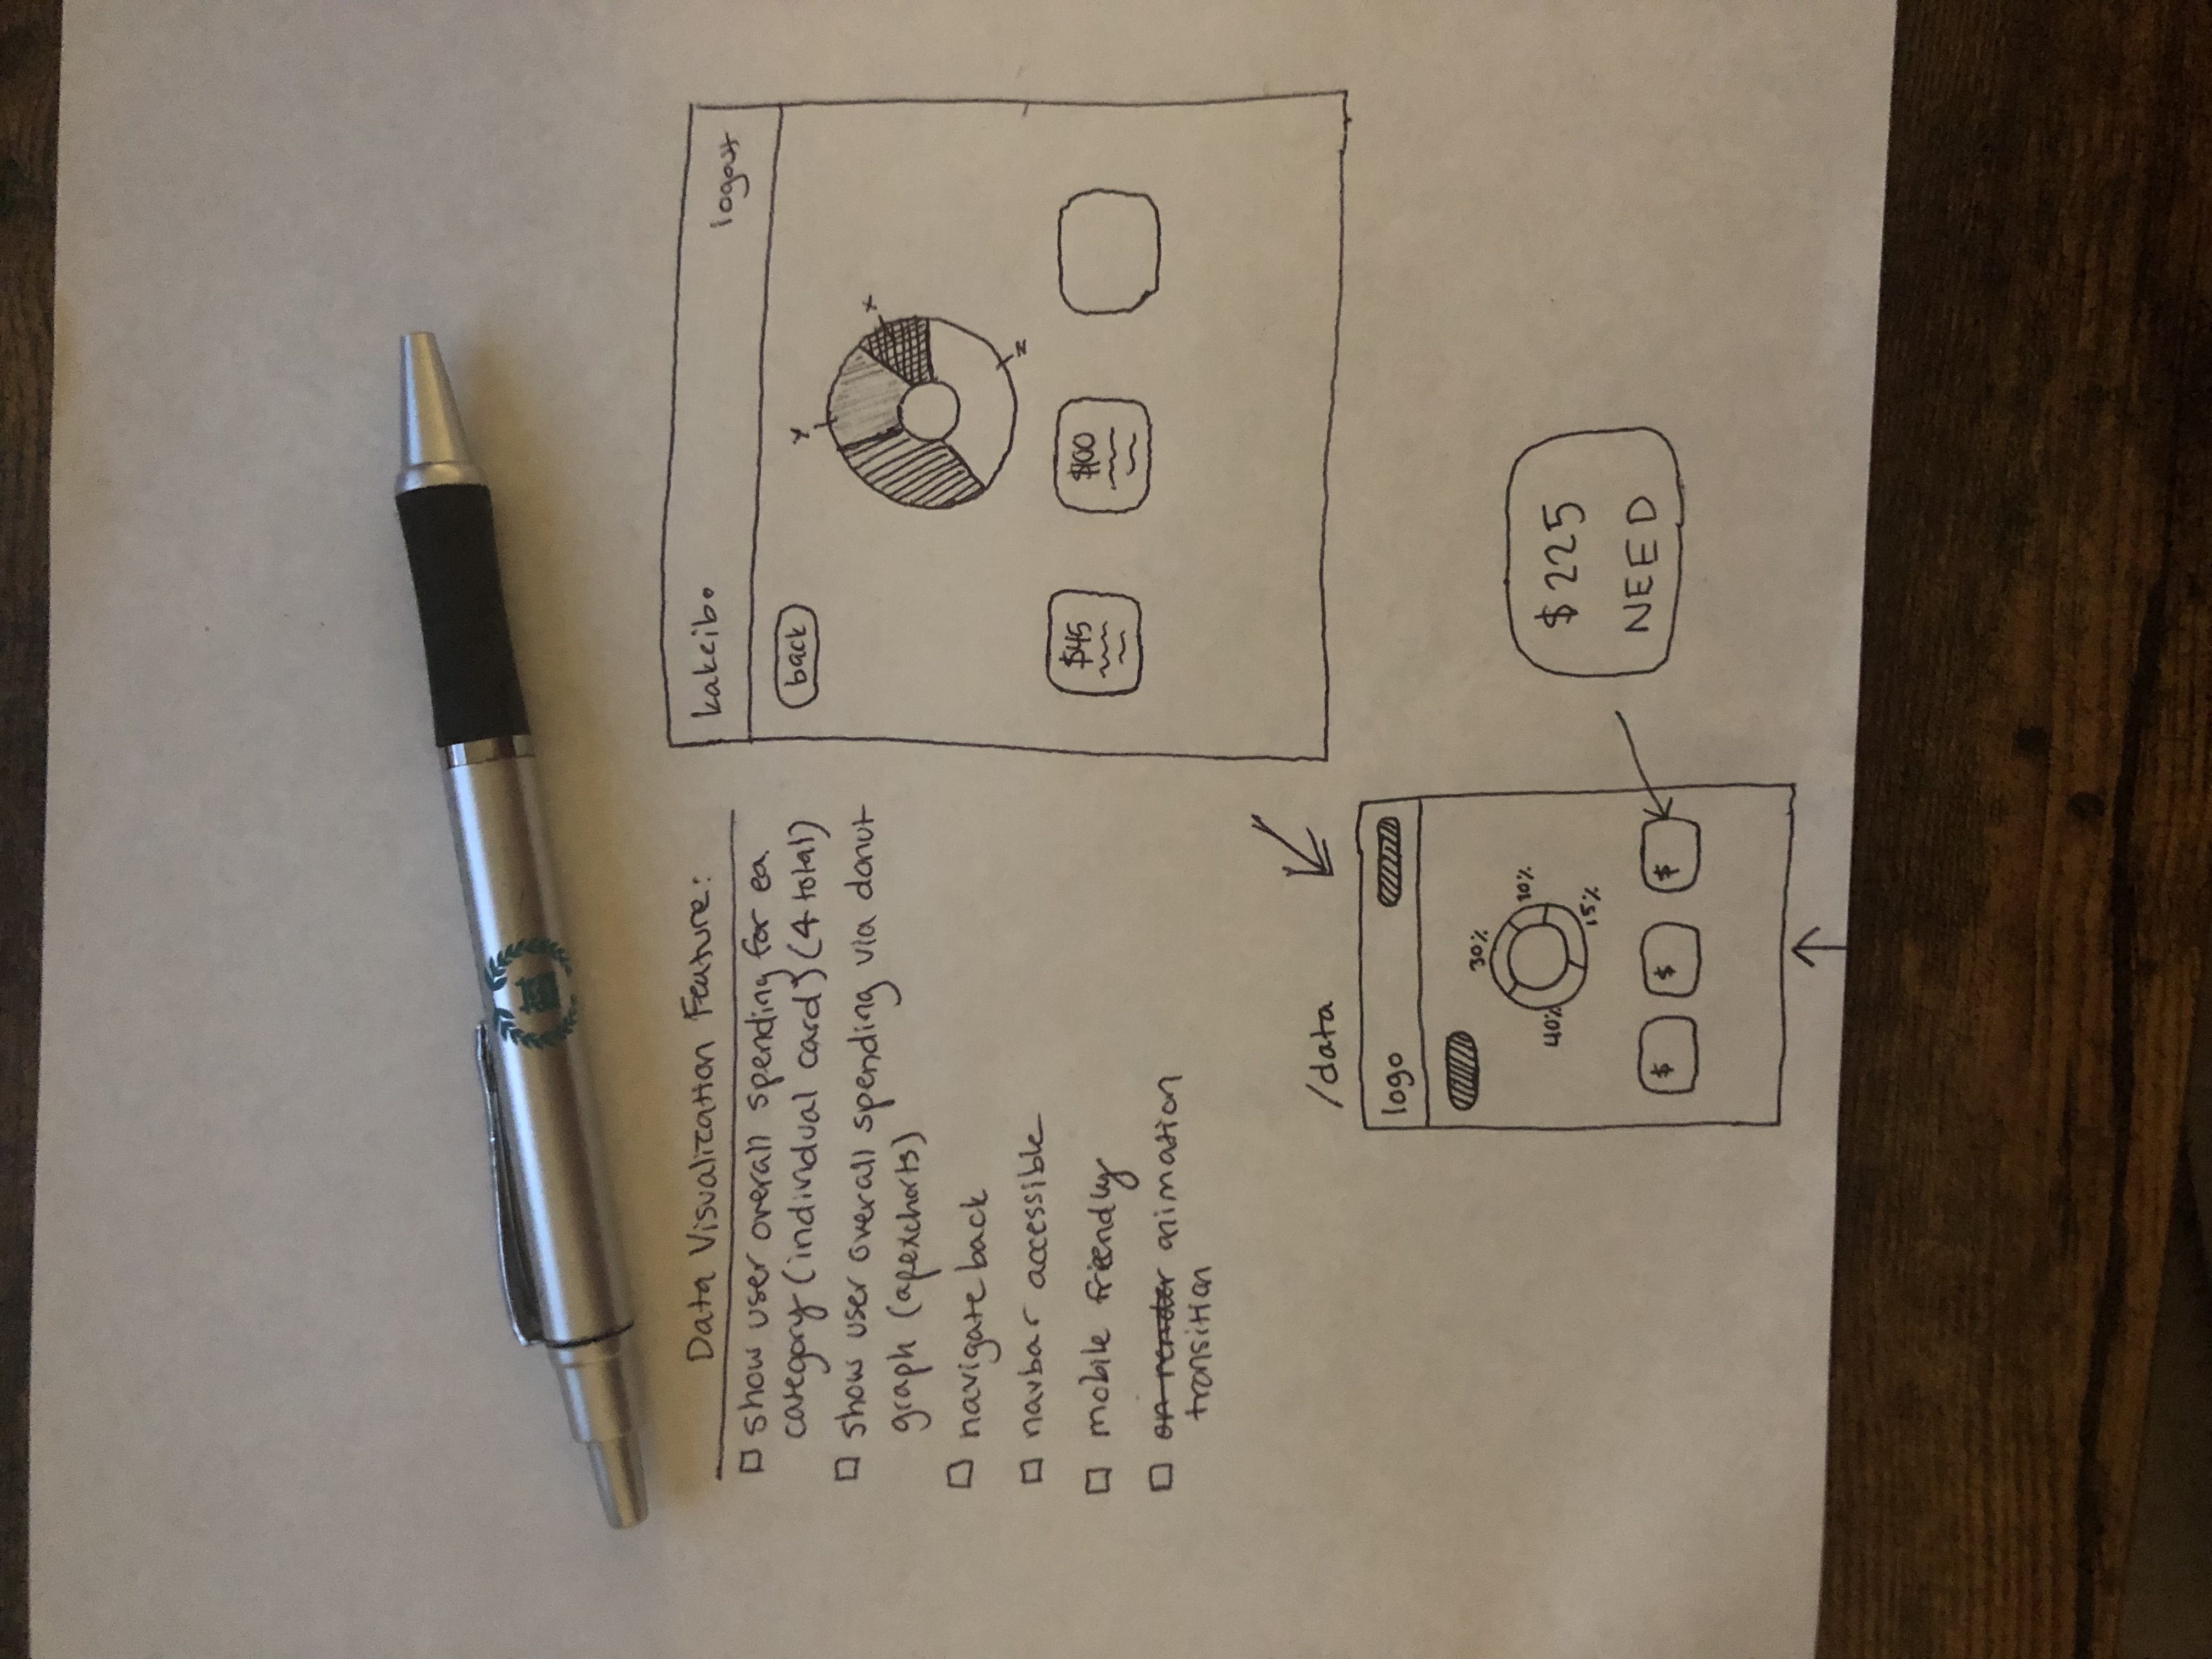 Data Visualization Feature:
show user overall spending for ea.
category (individual card) (4 total)
show user overall spending via donut
graph (apexcharts)
navigate back
navbar accessible
mobile friendly
on render animation
transition
kakeibo
logout
back
Y
X
Z
$45
$100
/data
logo
30%
10%
40%
15%
$ $ $
$225
NEED